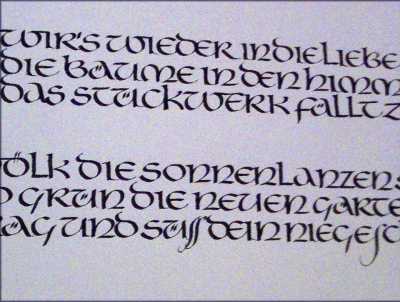 WIR'S WIEDER IN DIE LIEBE
DIE BÄUME IN DEN HIMM
DAS STÜCKWERK FÄLLT Z
ÖLK DIE SONNENLANZEN S
GRÜN DIE NEUEN GÄRTE
AG UND SÜSS DEIN NIEGEST